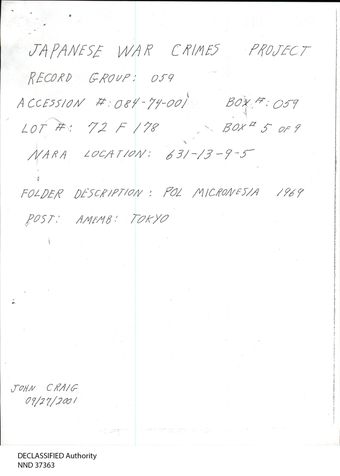 JAPANESE WAR CRIMES PROJECT
RECORD GROUP: 059
ACCESSION #: 084-74-001 BOX #: 059
LOT #: 72 F 178 BOX # 5 OF 9
NARA LOCATION: 631-13-9-5
FOLDER DESCRIPTION: POL MICRONESIA 1969
POST: AMEMB: TOKYO
JOHN CRAIG
09/27/2001
DECLASSIFIED Authority
NND 37363